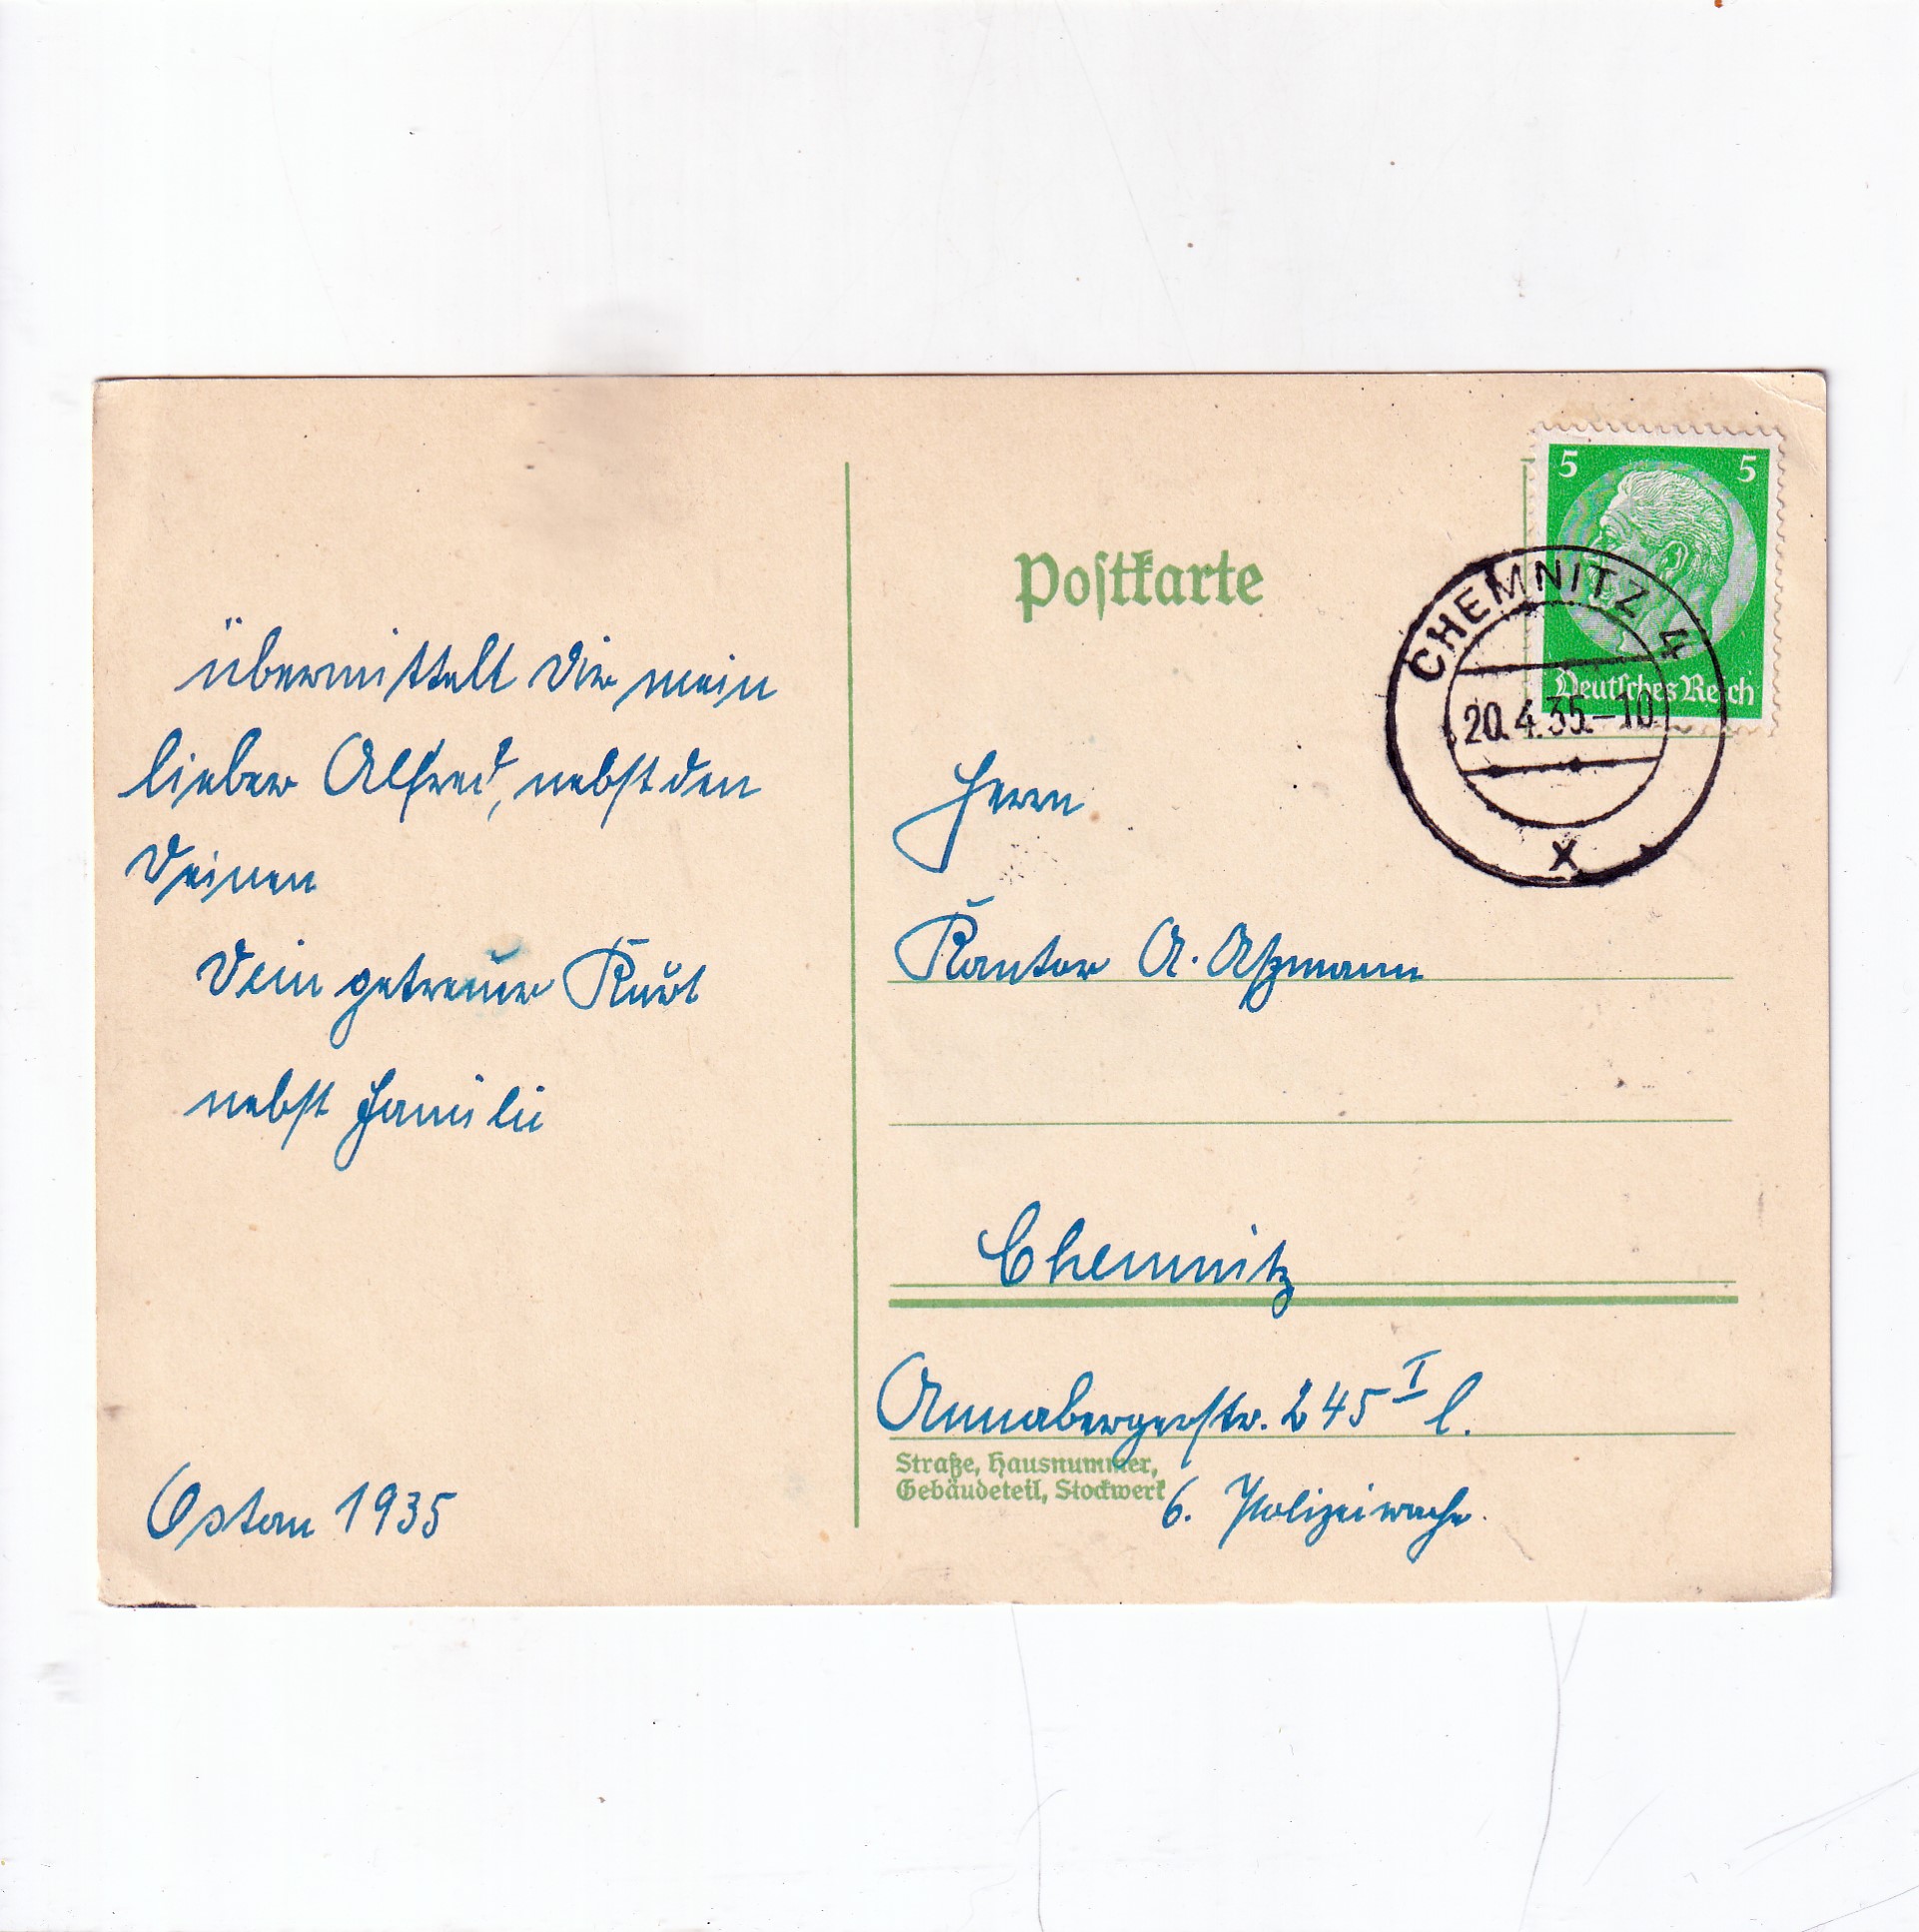 übermittelt Dir mein
lieber Alfred, nebst den
Deinen
Dein getreuer Kurt
nebst Familie
Ostern 1935
Postkarte
5 5
Deutsches Reich
CHEMNITZ 4
20.4.35.-10
x
Herrn
Kantor A. Aßmann
Chemnitz
Annabergerstr. 245 I l.
Straße, Hausnummer,
Gebäudeteil, Stockwerk
6. Polizeiwache.